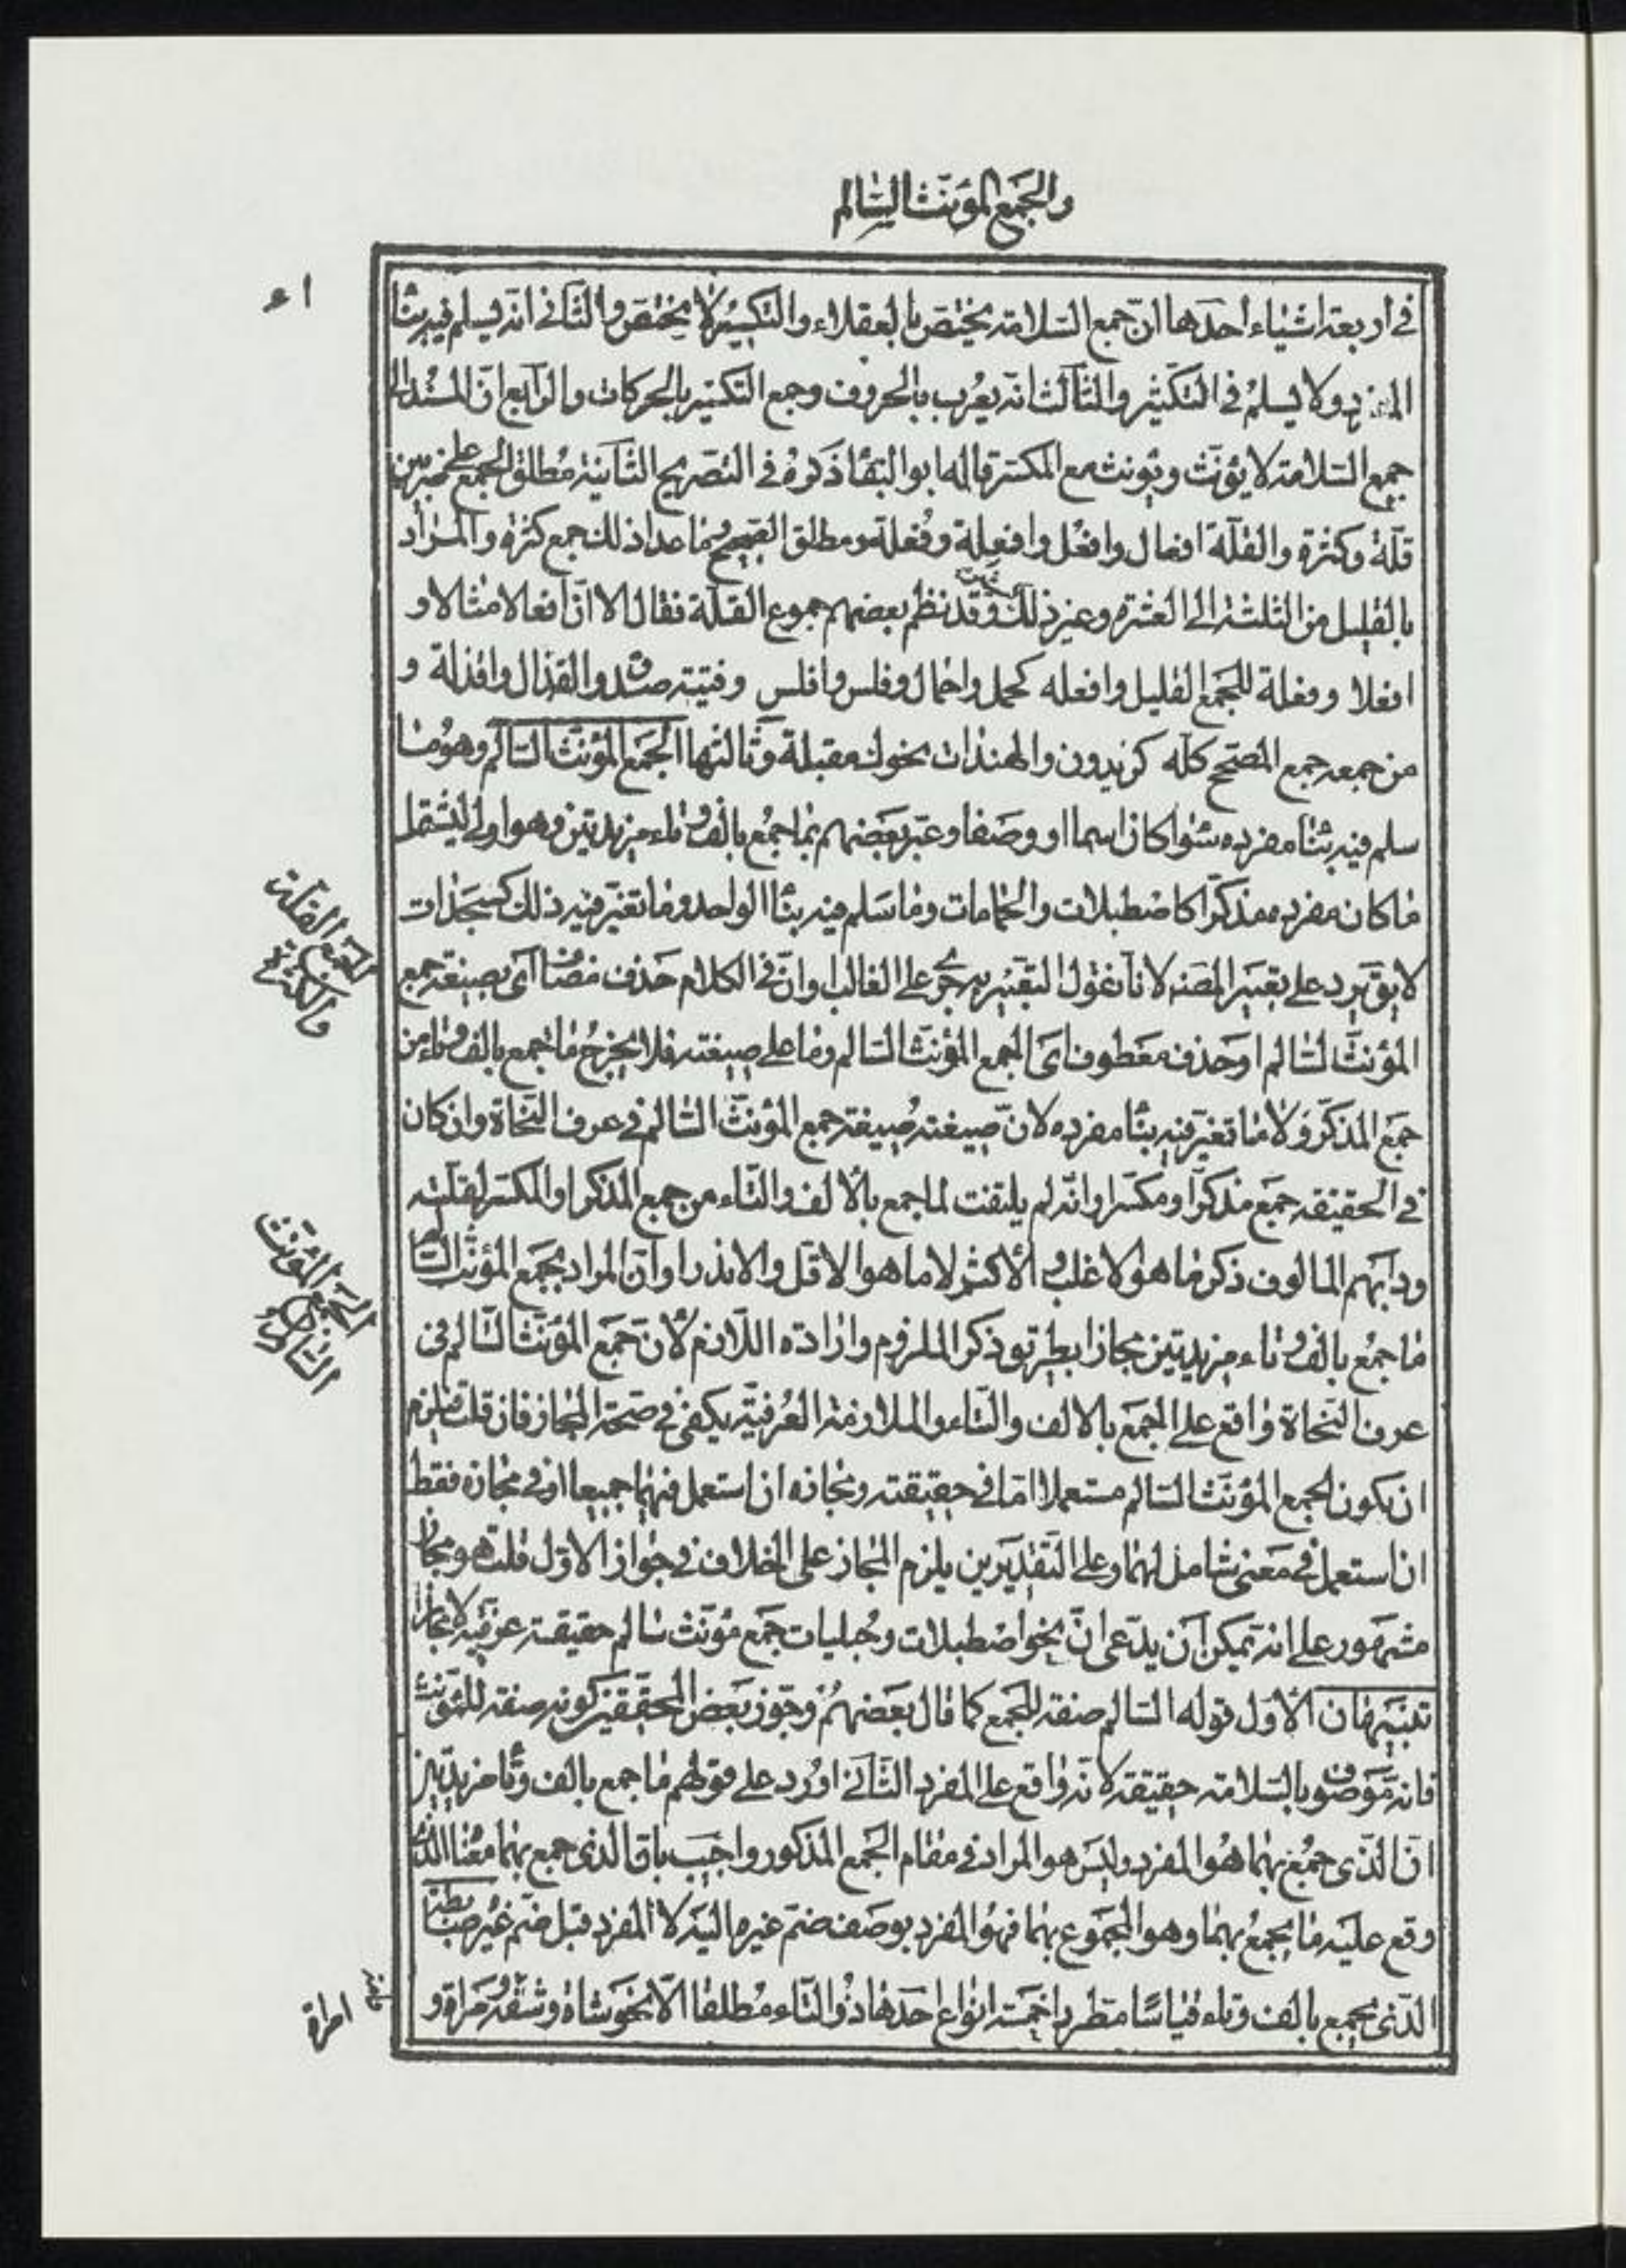 والجمع المؤنث السالم
في أربعة اشياء أحدها ان جمع السلامة يختص بالعقلاء والتكسير لا يختص والثاني انه يسلم فيه بنا
المفرد ولا يسلم في التكسير والثالث انه يعرب بالحروف وجمع التكسير بالحركات والرابع ان المسند الى
جمع السلامة لا يؤنث ويؤنث مع المكسر قاله ابو البقا ذكره في التصريح الثانية مطلق الجمع على ضربين
قلة وكثرة والقلة افعال وافعل وافعلة وفعلة ومطلق الصحيح وما عدا ذلك جمع كثرة والمراد
بالقليل من الثلثة الى العشرة وغير ذلك وقد نظم بعضهم جموع القلة فقال الا ان افعالا مثالا و
افعلا وفعلة للجمع القليل وافعله كحمل واحمال وفلس وافلس وفتية والقذال واقذلة و
من جمعه جمع المصحح كله كزيدون والهندات نحولك مقبلة وثالثها الجمع المؤنث السالم وهو ما
سلم فيه بنا مفرده سواء كان اسما او وصفا وعبر بعضهم بما جمع بالف وتاء مزيدتين وهو اولى ليشتمل
ما كان مفرده مذكرا كاصطبلات والحمامات وما سلم فيه بنا الواحد وما تغير فيه ذلك كسجدات
لا يق يرد على تعبير المصنف لانا نقول التعبير به جرى على الغالب وان في الكلام حذف مضاف اى بصيغة جمع
المؤنث السالم او حذف معطوف اى الجمع المؤنث السالم وما على صيغته فلا يخرج ما جمع بالف وتاء من
جمع المذكر ولا ما تغير فيه بنا مفرده لان صيغته صيغة جمع المؤنث السالم في عرف النحاة وان كان
في الحقيقة جمع مذكر او مكسر او انه لم يلتفت لما جمع بالالف والتاء من جمع المذكر او المكسر لقلته
ودأبهم المالوف ذكر ما هو الاغلب والاكثر لا ما هو الاقل والاندر او ان المراد بجمع المؤنث السالم
ما جمع بالف وتاء مزيدتين مجازا بطريق ذكر الملزوم وارادة اللازم لان جمع المؤنث السالم في
عرف النحاة واقع على الجمع بالالف والتاء والملازمة العرفية يكفى في صحة المجاز فان قلت فيلزم
ان يكون الجمع المؤنث السالم مستعملا اما في حقيقته ومجازه ان استعمل فيهما جميعا او في مجازه فقط
ان استعمل في معنى شامل لهما وعلى التقديرين يلزم المجاز على الخلاف في جواز الاول قلت هو مجاز
مشهور على انه يمكن ان يدعى ان نحو اصطبلات وحبليات جمع مؤنث سالم حقيقة عرفية لا مجاز
تنبيهان الاول قوله السالم صفة للجمع كما قال بعضهم وجوز بعض المحققين كونه صفة للمؤنث
فانه موصوف بالسلامة حقيقة لانه واقع على المفرد الثانى اورد على قولهم ما جمع بالف وتا مزيدتين
ان الذى جمع بهما هو المفرد وليس هو المراد في مقام الجمع المذكور واجيب بان الذى جمع بهما معناه الذى
وقع عليه ما يجمع بهما وهو المجموع بهما فهو المفرد بوصف ضم غيره اليه لا المفرد قبل ضم غيره
الذى يجمع بالف وتاء قياسا مطردا خمسة انواع احدها ذو التاء مطلقا الا نحو شاة وشفة ومراة و
الجمع القلة
والكثرة
الجمع المؤنث
السالم
امراة